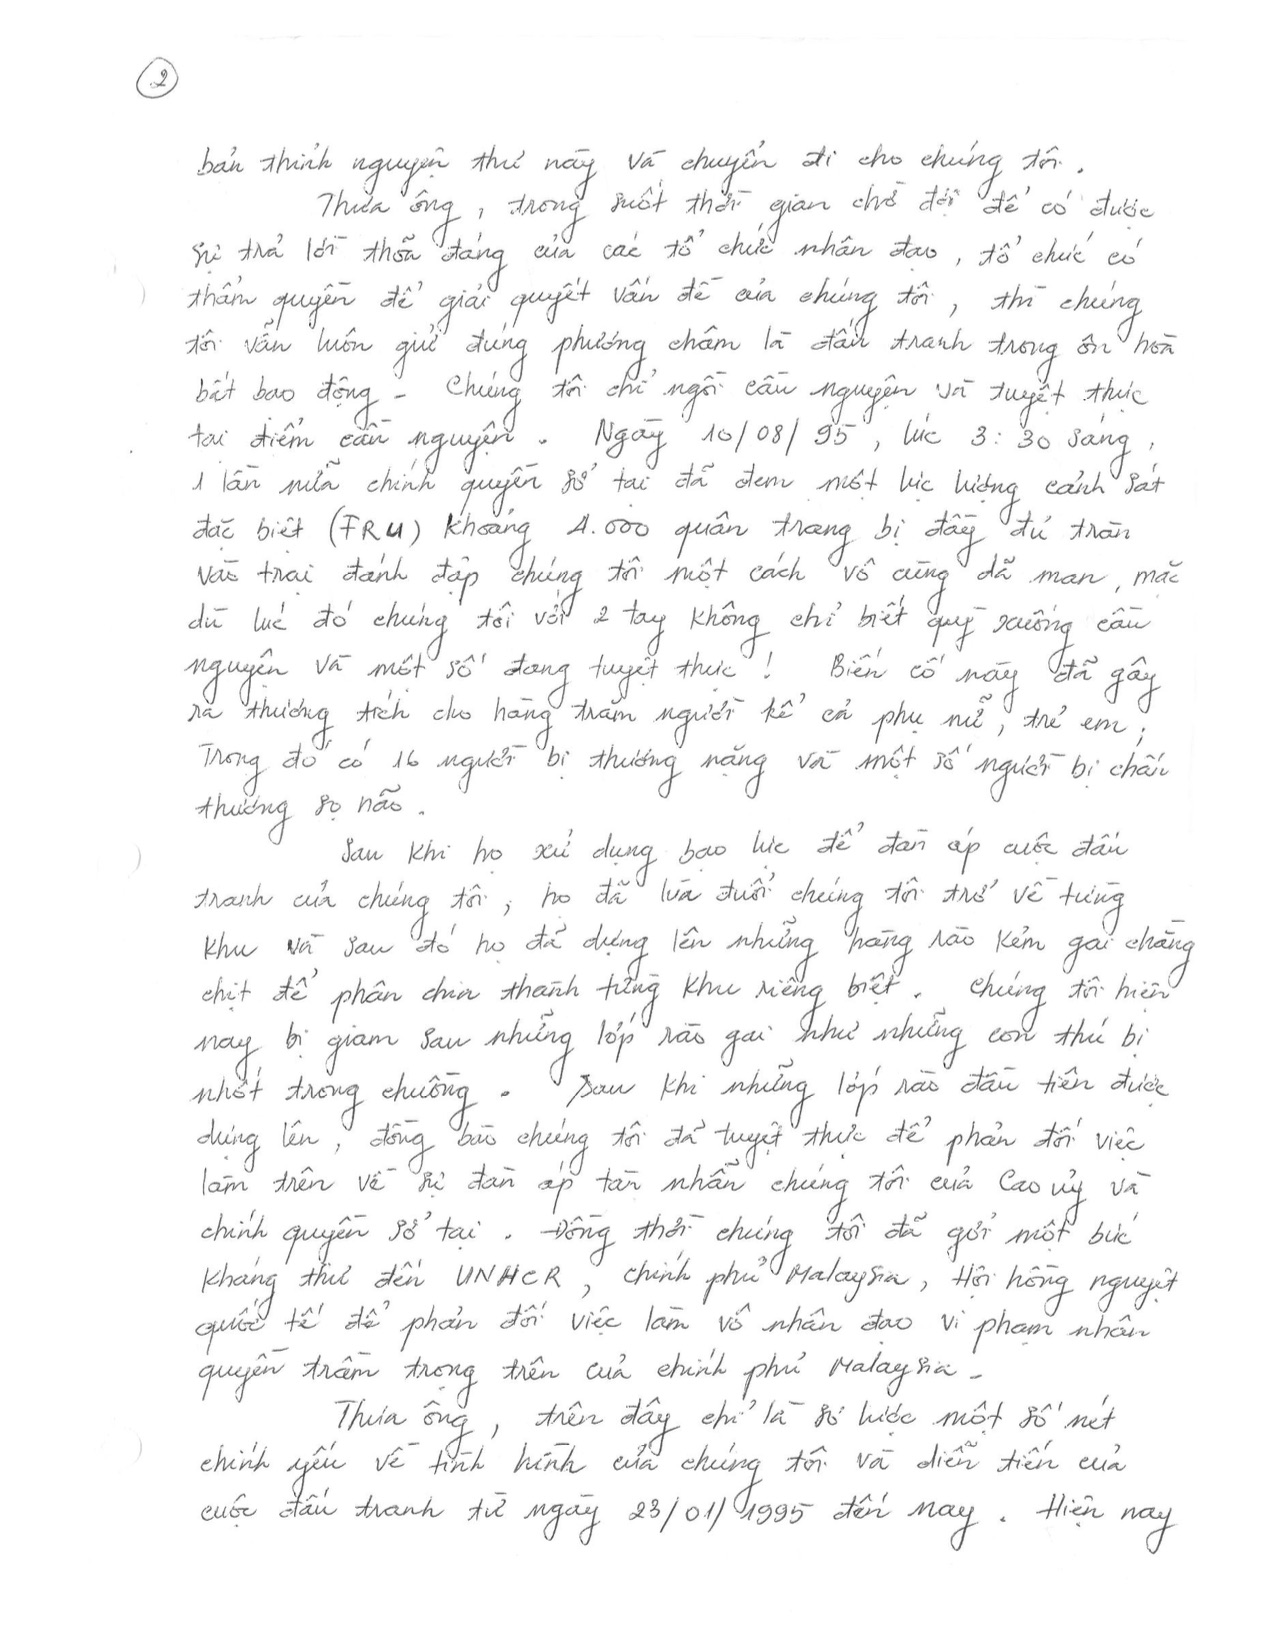 2
bản thỉnh nguyện thư này và chuyển đi cho chúng tôi.
Thưa ông, trong suốt thời gian chờ đợi để có được
sự trả lời thỏa đáng của các tổ chức nhân đạo, tổ chức có
thẩm quyền để giải quyết vấn đề của chúng tôi, thì chúng
tôi vẫn luôn giữ đúng phương châm là đấu tranh trong ôn hoà
bất bạo động - Chúng tôi chỉ ngồi cầu nguyện và tuyệt thực
tại điểm cầu nguyện. Ngày 10/08/95, lúc 3:30 sáng,
1 lần nữa chính quyền sở tại đã đem một lực lượng cảnh sát
đặc biệt (FRU) khoảng 4.000 quân trang bị đầy đủ tràn
vào trại đánh đập chúng tôi một cách vô cùng dã man, mặc
dù lúc đó chúng tôi với 2 tay không chỉ biết quỳ xuống cầu
nguyện và một số đang tuyệt thực! Biến cố này đã gây
ra thương tích cho hàng trăm người kể cả phụ nữ, trẻ em;
Trong đó có 16 người bị thương nặng và một số người bị chấn
thương sọ não.
Sau khi họ xử dụng bạo lực để đàn áp cuộc đấu
tranh của chúng tôi, họ đã lùa đuổi chúng tôi trở về từng
khu và sau đó họ đã dựng lên những hàng rào kẻm gai chằng
chịt để phân chia thành từng khu riêng biệt. Chúng tôi hiện
nay bị giam sau những lớp rào gai như những con thú bị
nhốt trong chuồng. Sau khi những lớp rào đầu tiên được
dựng lên, đồng bào chúng tôi đã tuyệt thực để phản đối việc
làm trên về sự đàn áp tàn nhẫn chúng tôi của Cao ủy và
chính quyền sở tại. Đồng thời chúng tôi đã gởi một bức
kháng thư đến UNHCR, chính phủ Malaysia, Hội hồng nguyệt
quốc tế để phản đối việc làm vô nhân đạo vi phạm nhân
quyền trầm trọng trên của chính phủ Malaysia -
Thưa ông, trên đây chỉ là sơ lược một số nét
chính yếu về tình hình của chúng tôi và diễn tiến của
cuộc đấu tranh từ ngày 23/01/1995 đến nay. Hiện nay